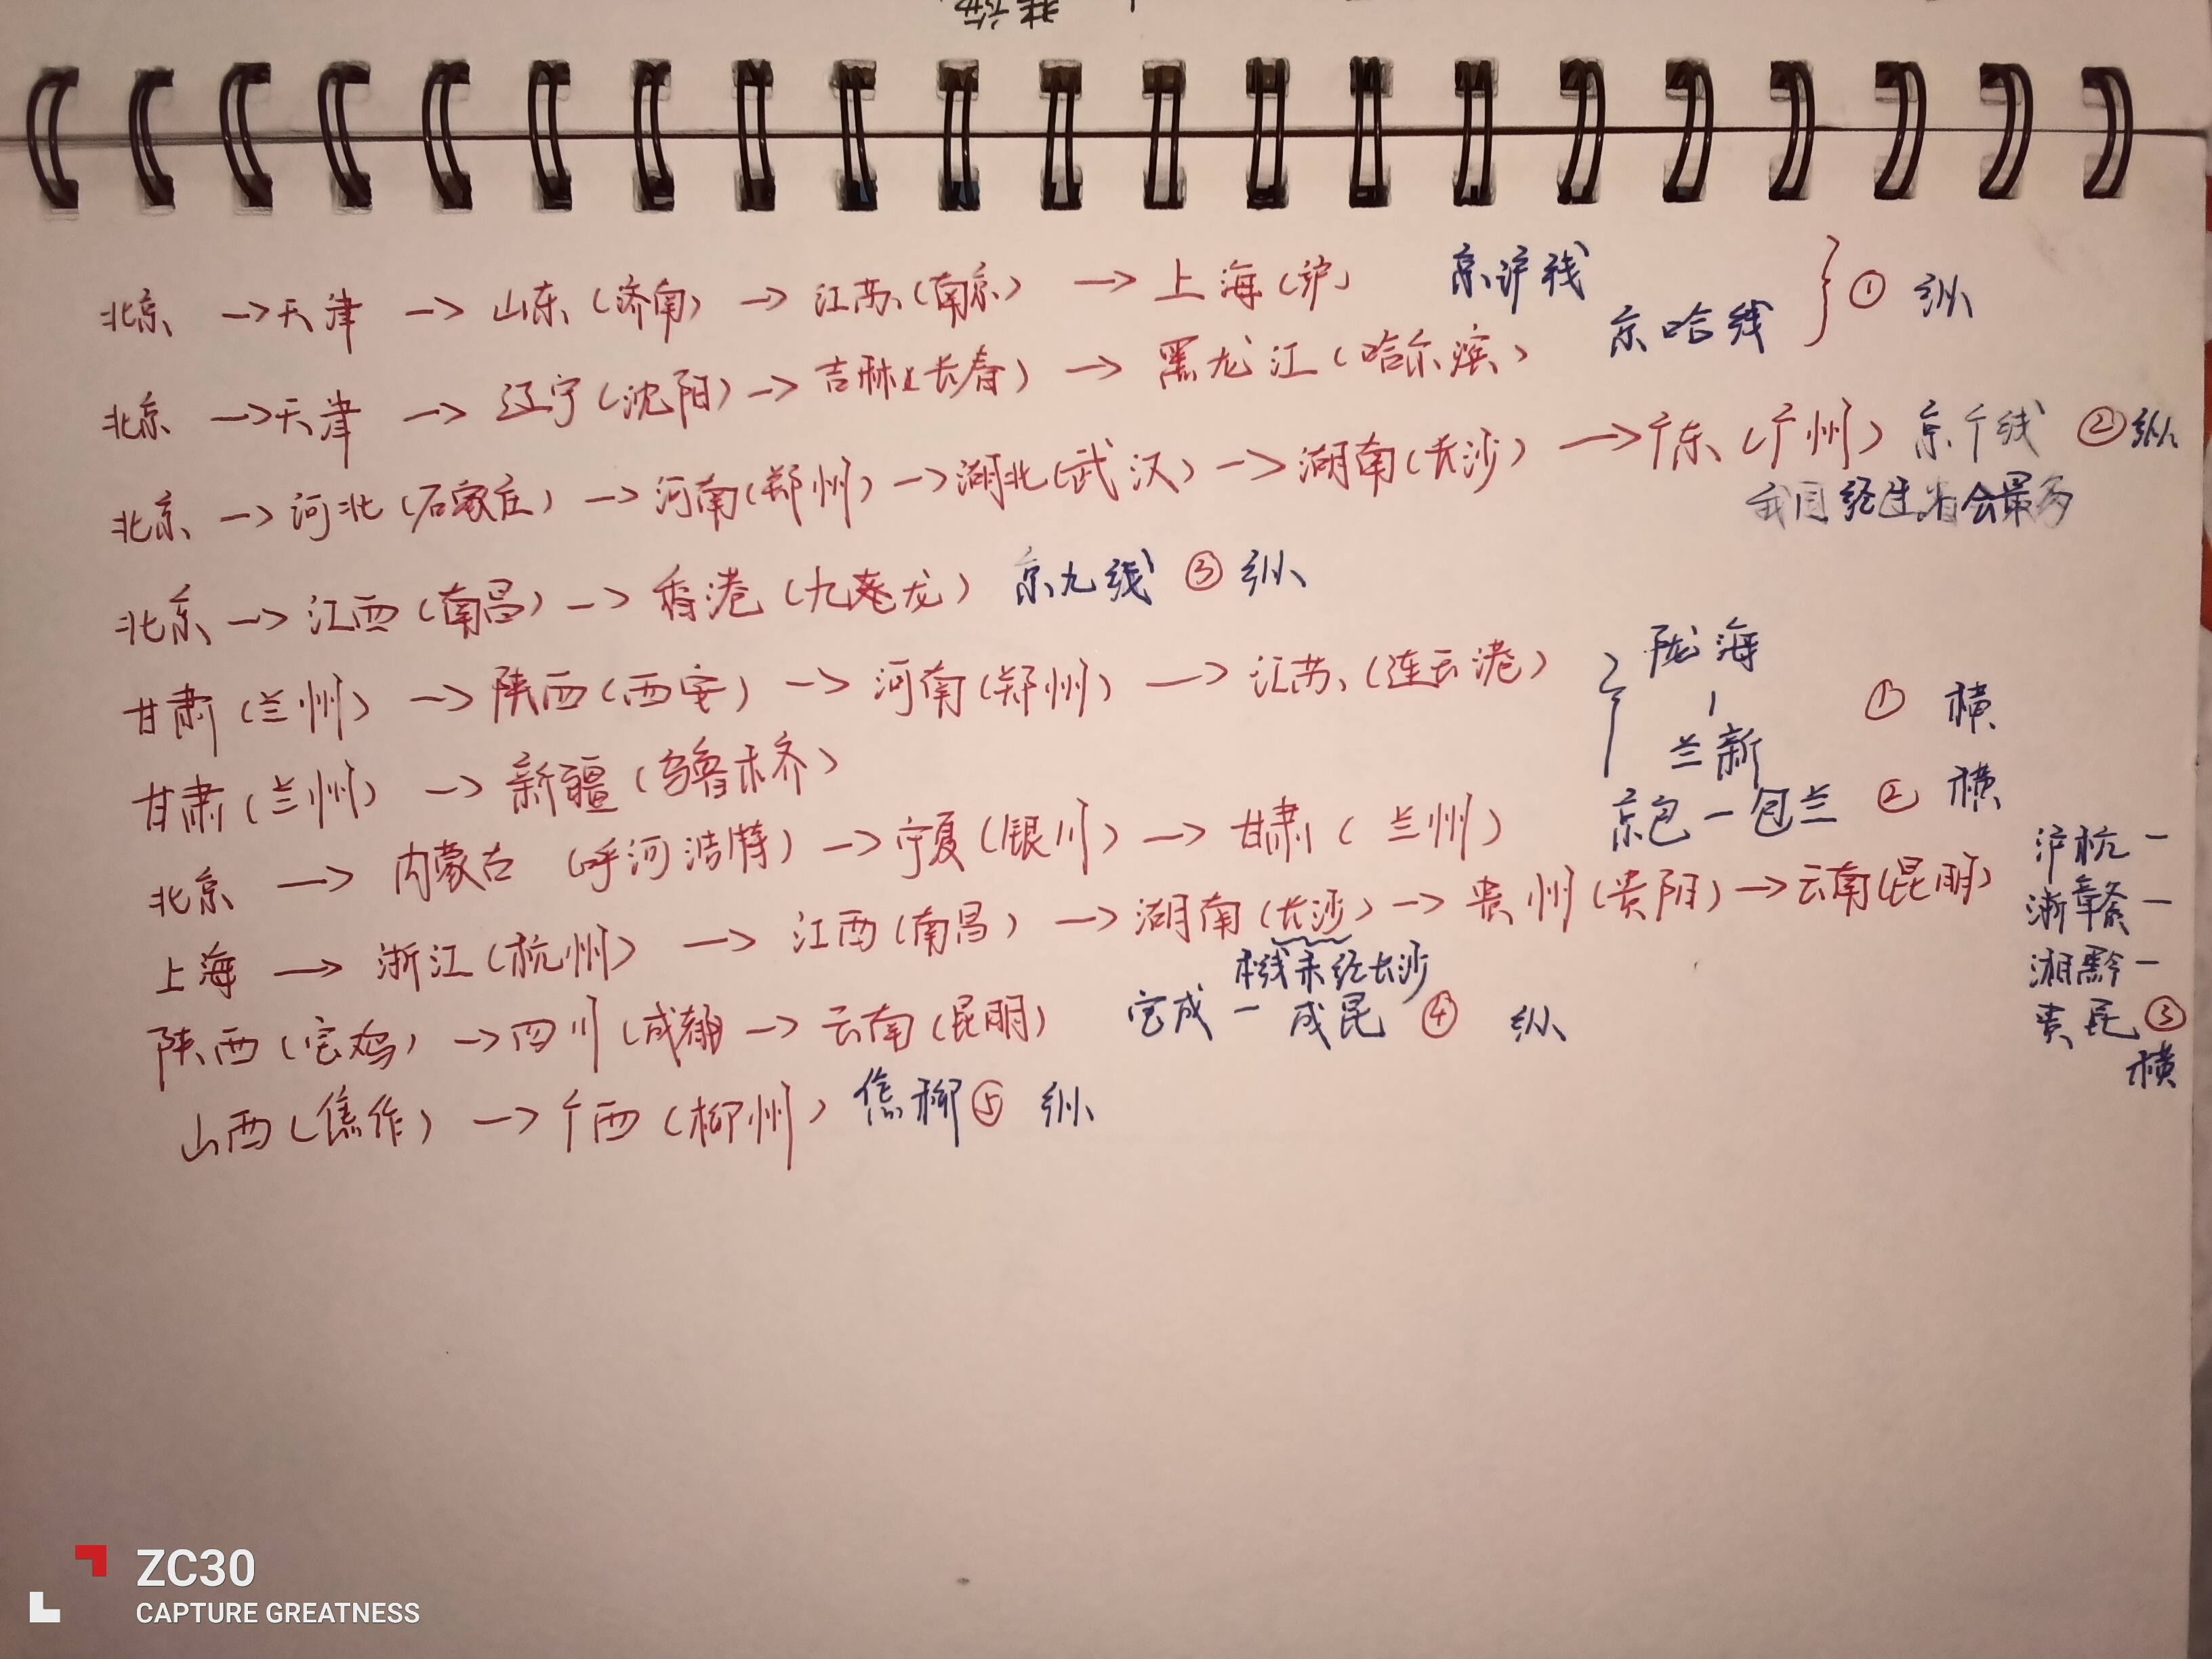 北京 →天津 → 山东(济南) → 江苏(南京) → 上海(沪) 京沪线
京哈线 } ① 纵
北京 →天津 → 辽宁(沈阳)→吉林(长春) → 黑龙江(哈尔滨)
北京 → 河北(石家庄) → 河南(郑州) →湖北(武汉) → 湖南(长沙) → 广东(广州) 京广线 ②纵
我国经过省会最多
北京 → 江西(南昌) → 香港(九龙) 京九线 ③ 纵
甘肃(兰州) → 陕西(西安) → 河南(郑州) → 江苏(连云港) } 陇海
-
兰新
① 横
甘肃(兰州) → 新疆(乌鲁木齐)
北京 → 内蒙古 (呼河浩特) → 宁夏(银川) → 甘肃(兰州) 京包-包兰 ② 横
上海 → 浙江(杭州) → 江西(南昌) → 湖南(长沙) → 贵州(贵阳) → 云南(昆明)
沪杭-
浙赣-
湘黔-
贵昆③
横
本线未经长沙
陕西(宝鸡) → 四川(成都) → 云南(昆明) 宝成 - 成昆 ④ 纵
山西(焦作) → 广西(柳州) 焦柳⑤ 纵
ZC30
CAPTURE GREATNESS